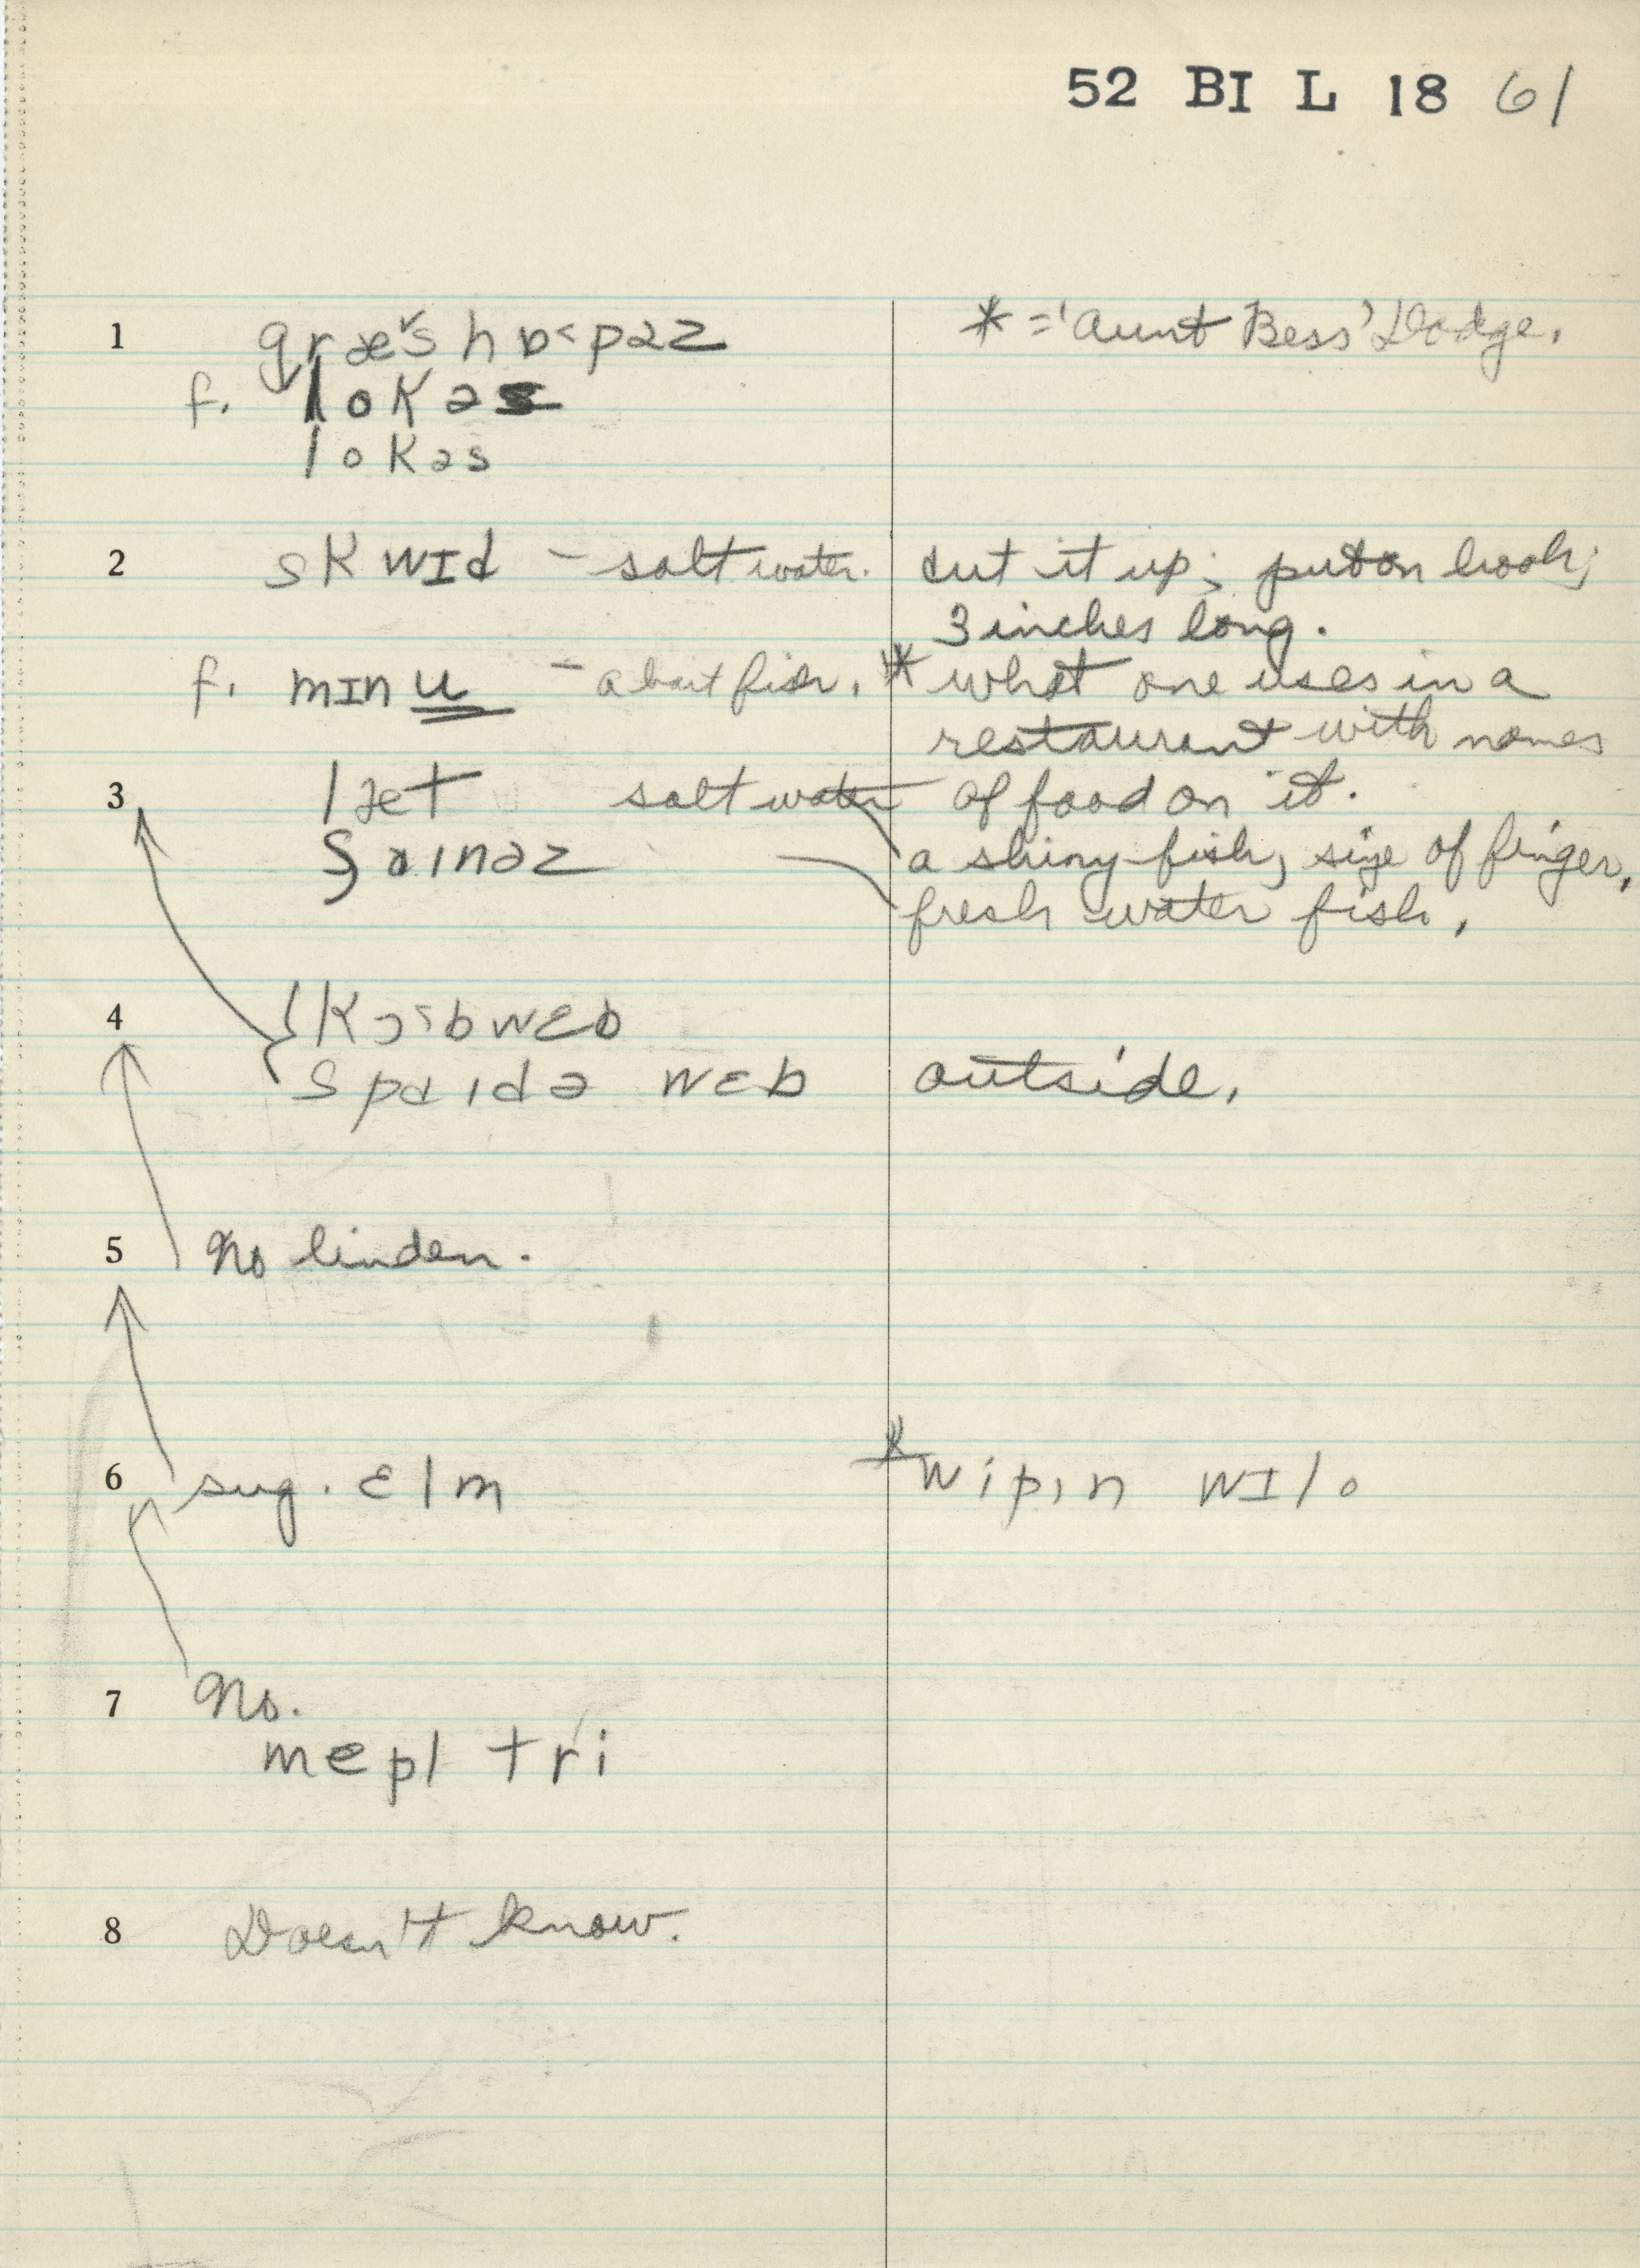 52 BI L 18 61
1 græˇs hɒ˂pəz * = 'Aunt Bess' Dodge.
f. lokəs
lokəs
2 skwɪd – salt water. cut it up; put on hook;
3 inches long.
f. mɪnu – a bait fish. * what one uses in a
restaurant with names
3 læt salt water of food on it.
ʃaɪnəz a shiny fish, size of finger,
fresh water fish.
4 kɔ˂bwɛb
spaɪdə wɛb outside.
5 No linden.
6 sug. ɛlm * wipɪn wɪlo
7 No.
mepl tri
8 Doesn't know.